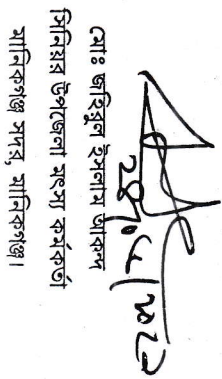 মোঃ জহিরুল ইসলাম আকন্দ
সিনিয়র উপজেলা মৎস্য কর্মকর্তা
মানিকগঞ্জ সদর, মানিকগঞ্জ।